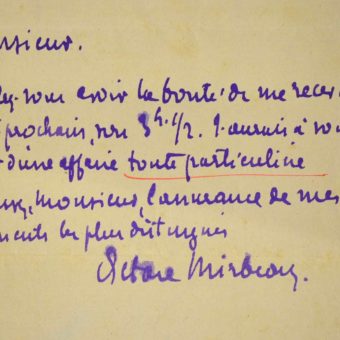 nsieur.
ez-vous avoir la bonté de me recev
prochain, vers 3h.1/2. J'aurais à vo
d'une affaire toute particulière
Monsieur, l'assurance de mes
ments les plus distingués
Octave Mirbeau.